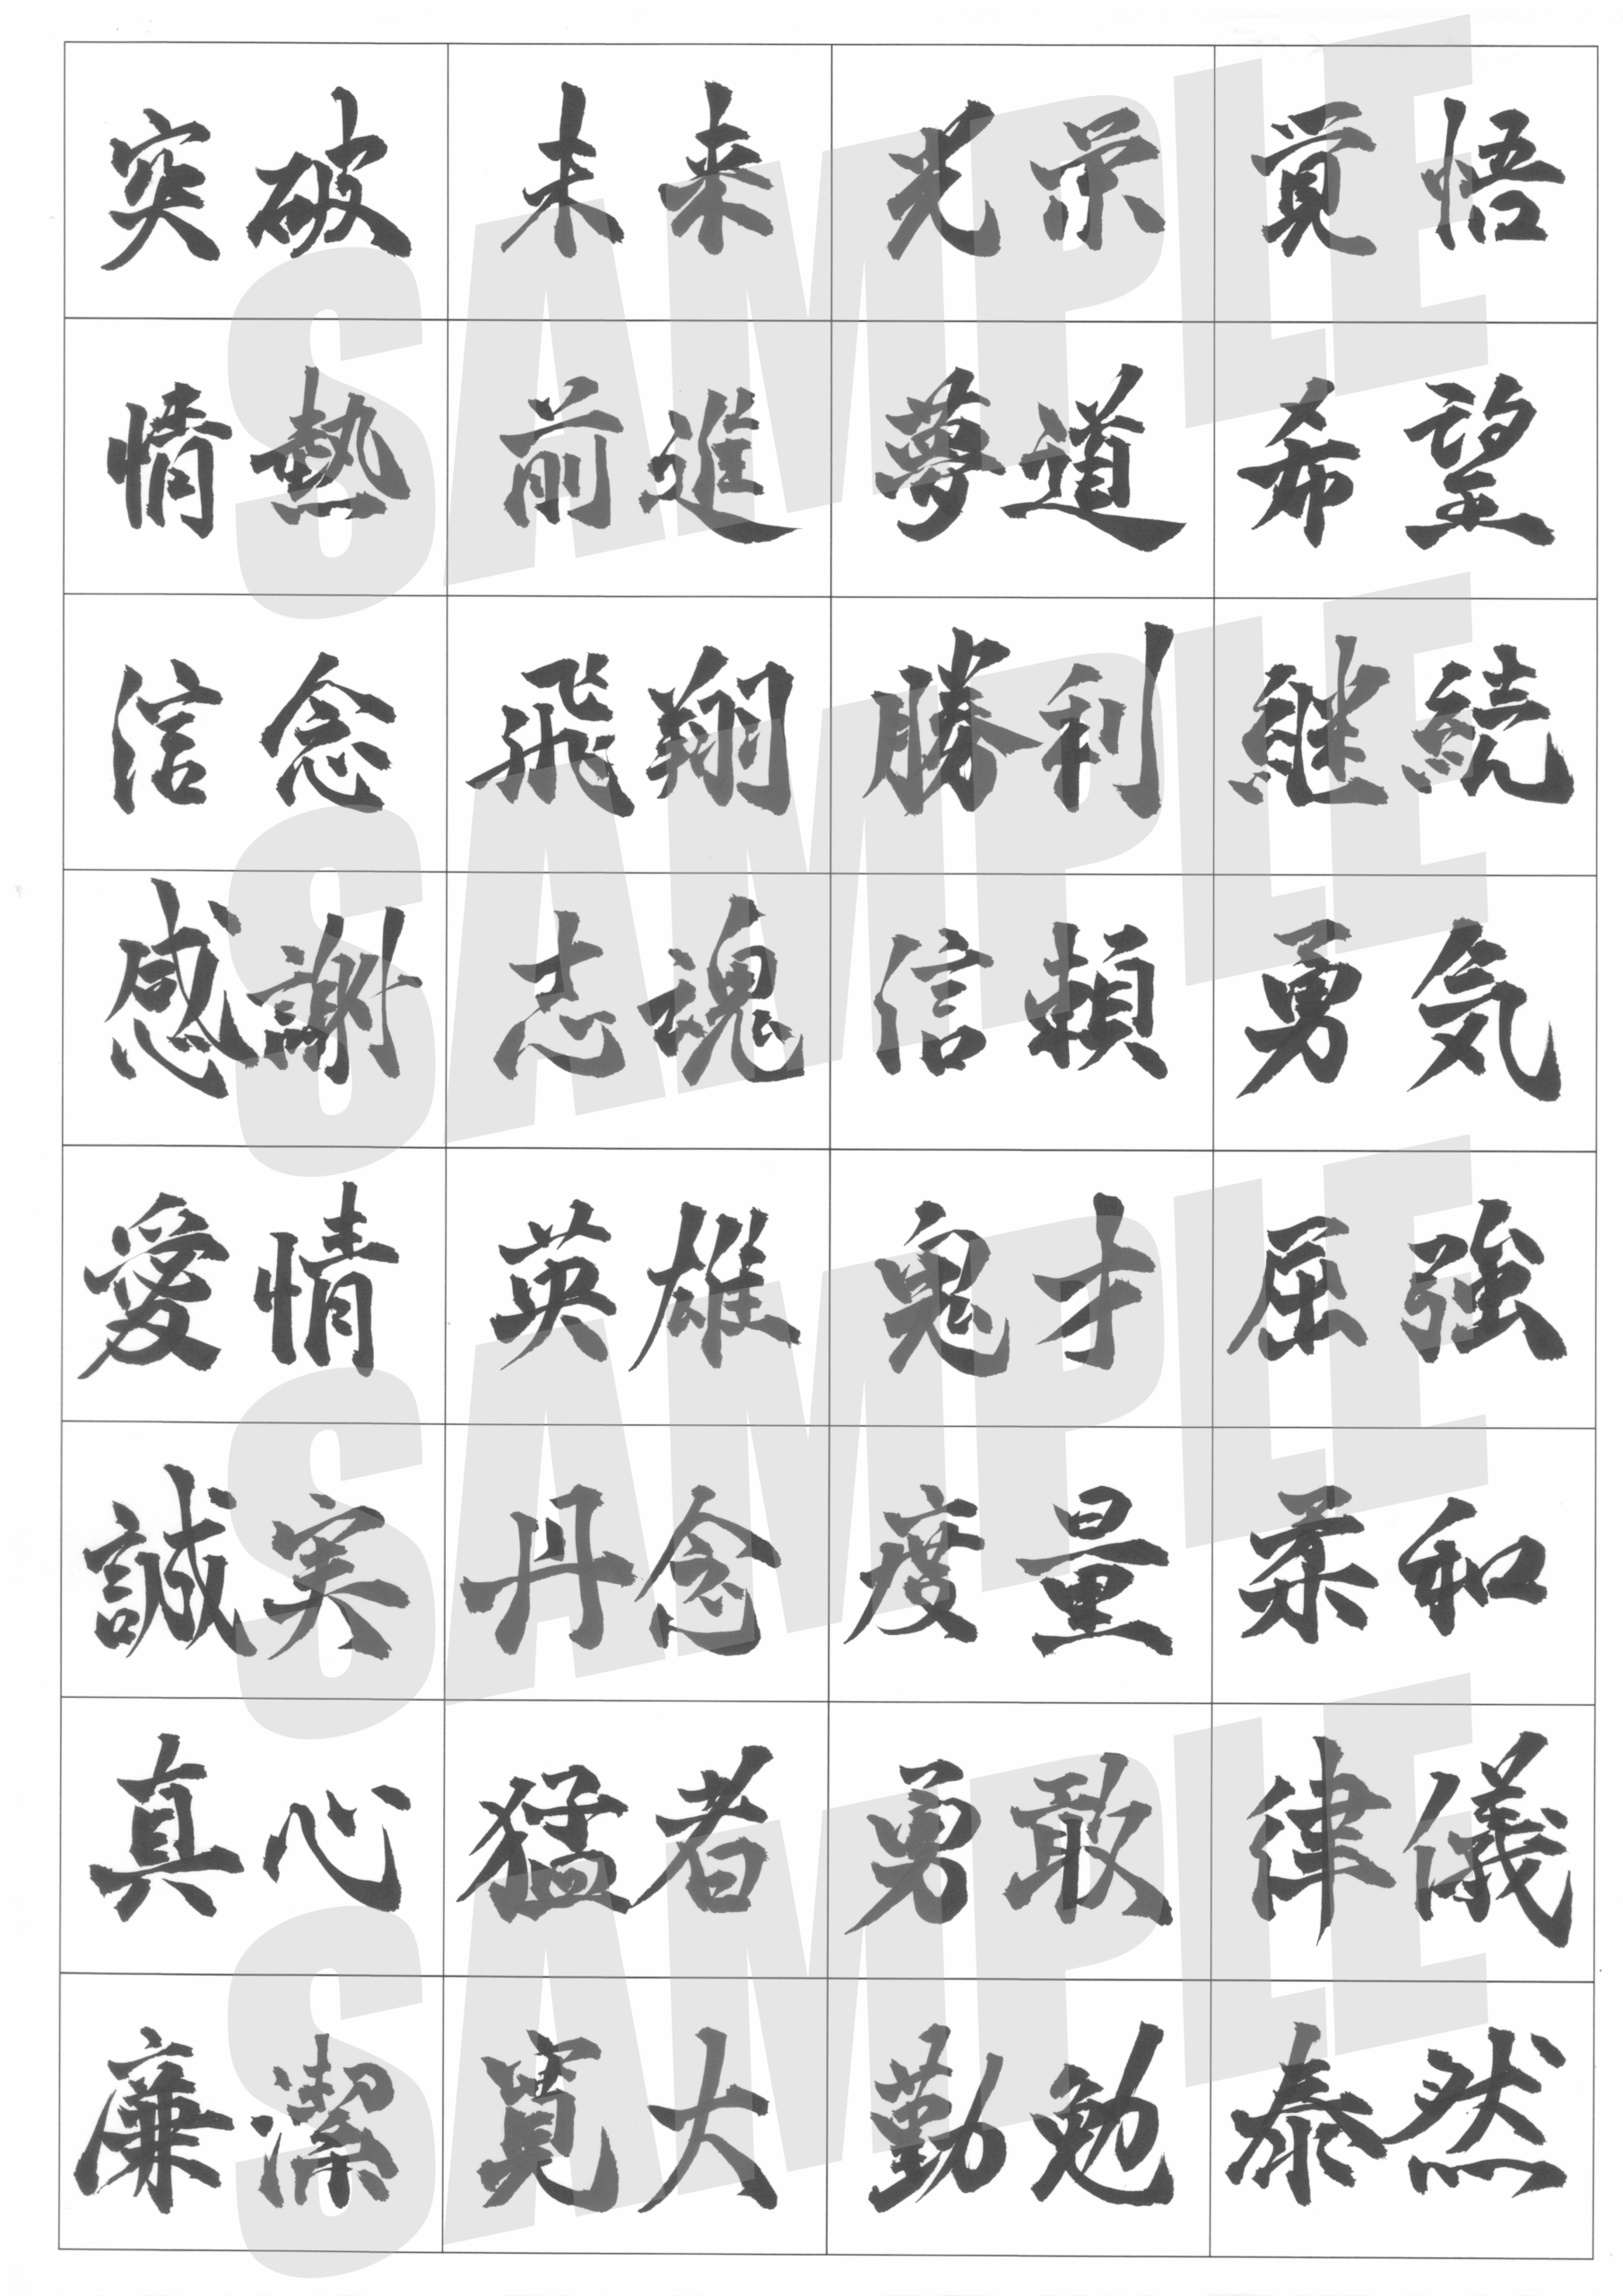 突破 未来 光栄 覚悟
情熱 前進 夢道 希望
信念 飛翔 勝利 継続
感謝 志魂 信頼 勇気
愛情 英雄 鬼才 屈強
誠実 丹念 度量 柔和
真心 猛者 勇敢 律儀
廉潔 寛大 勤勉 泰然
SAMPLE
SAMPLE
SAMPLE
SAMPLE